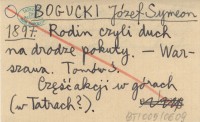 BOGUCKI Józef Symeon
1897. Rodin czyli duch
na drodze pokuty. — War-
szawa. Tomów 3.
Część akcji w górach
(w Tatrach?).